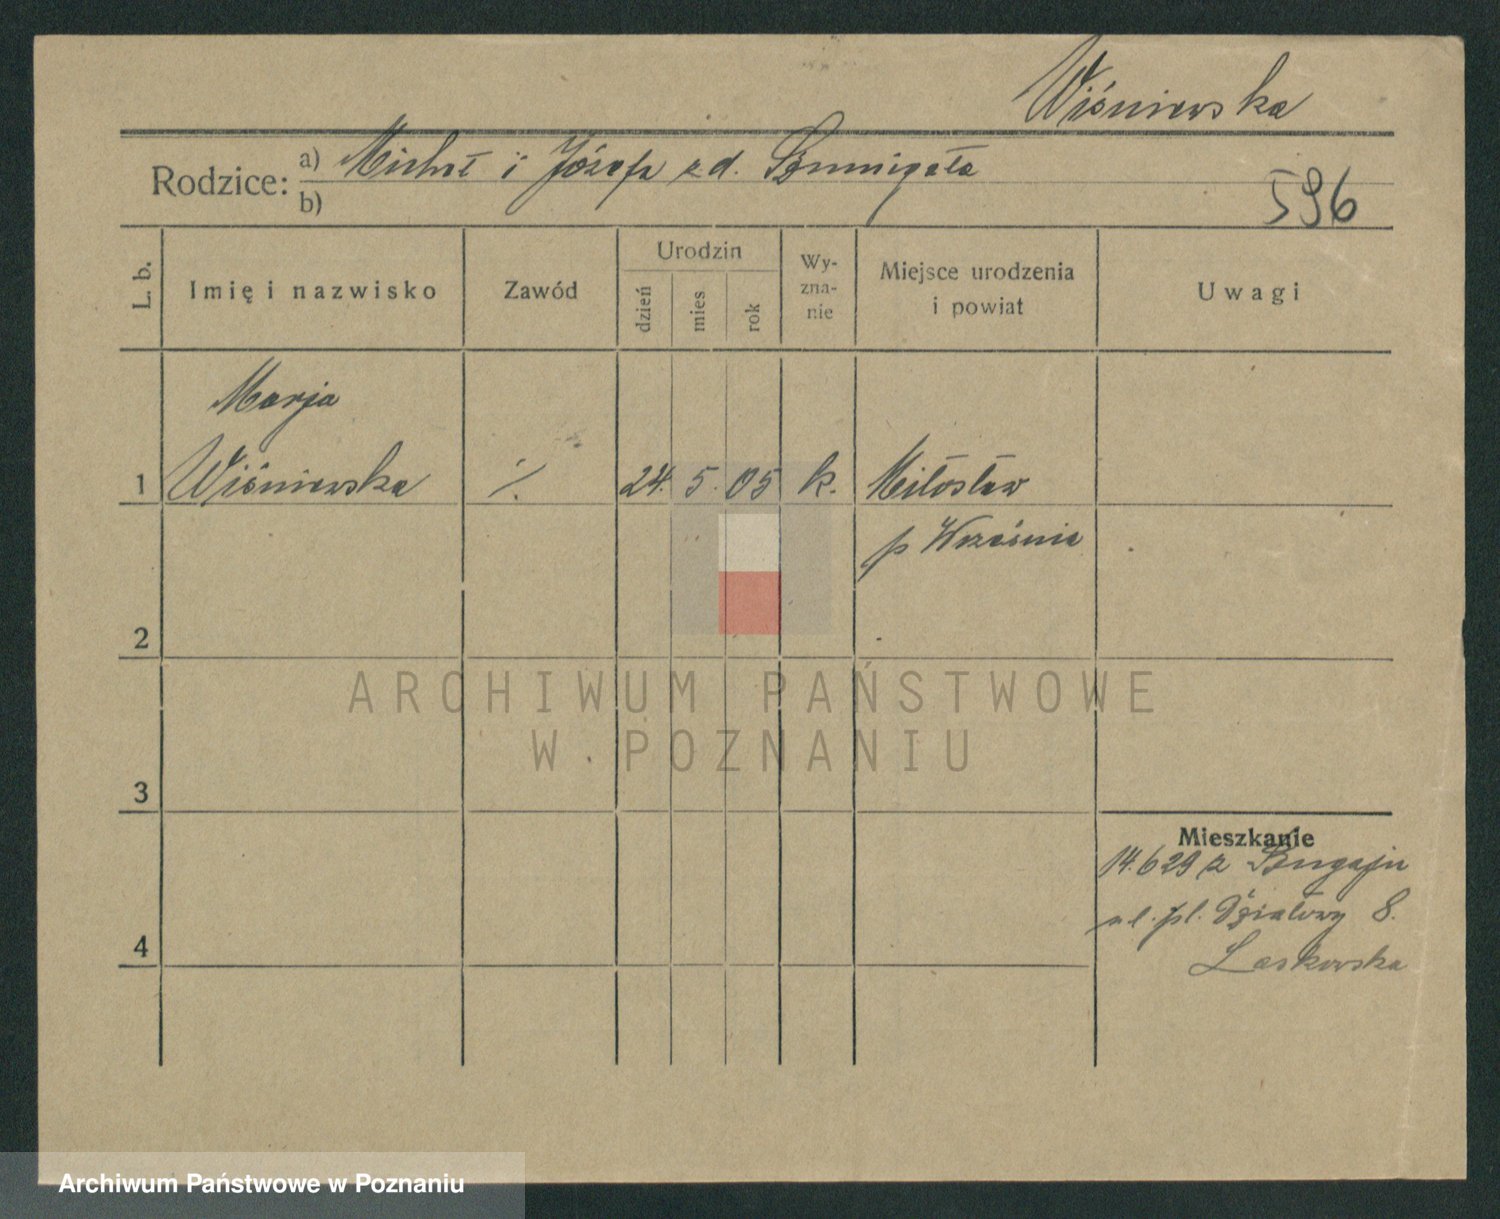 Wiśniewska
Rodzice: a) Michał i Józefa z d. Szmigała
b)
596
L. b.
Imię i nazwisko
Zawód
Urodzin
dzień
mies
rok
Wy-
zna-
nie
Miejsce urodzenia
i powiat
Uwagi
Marja
1 Wiśniewska ./. 24. 5. 05 k. Miłosław
p Września
2
ARCHIWUM PAŃSTWOWE
W POZNANIU
3
Mieszkanie
14.6 29 z Bugaju
ul. pl. Działowy 8.
4
Laskowska
Archiwum Państwowe w Poznaniu